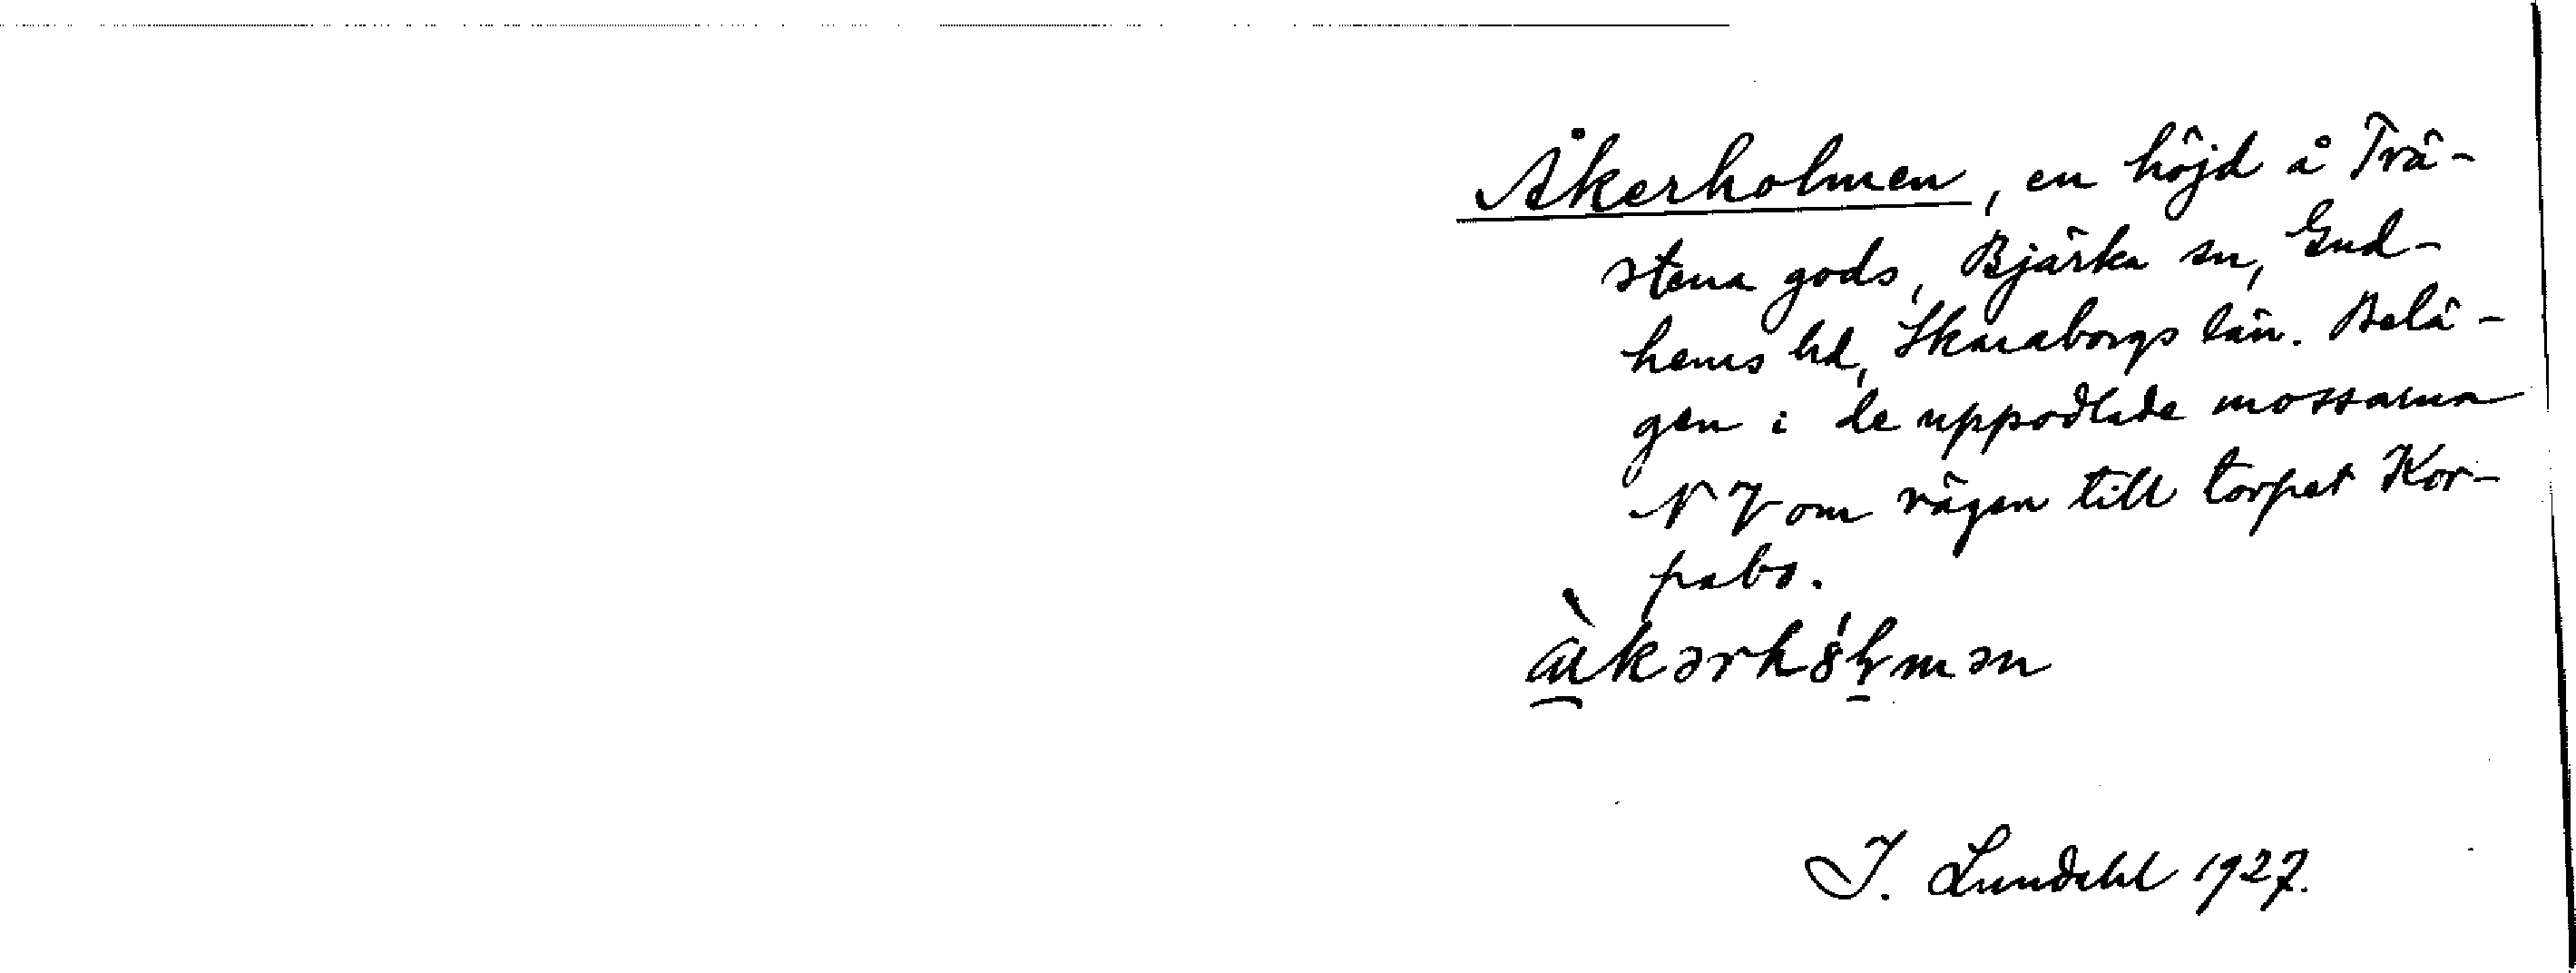 Åkerholmen, en höjd å Trä-
stena gods, Bjärka sn, Gud-
hems hd, Skaraborgs län. Belä-
gen i de uppodlade mossarna
NV om vägen till torpet Kor-
pabo.
I. Lundahl 1927.